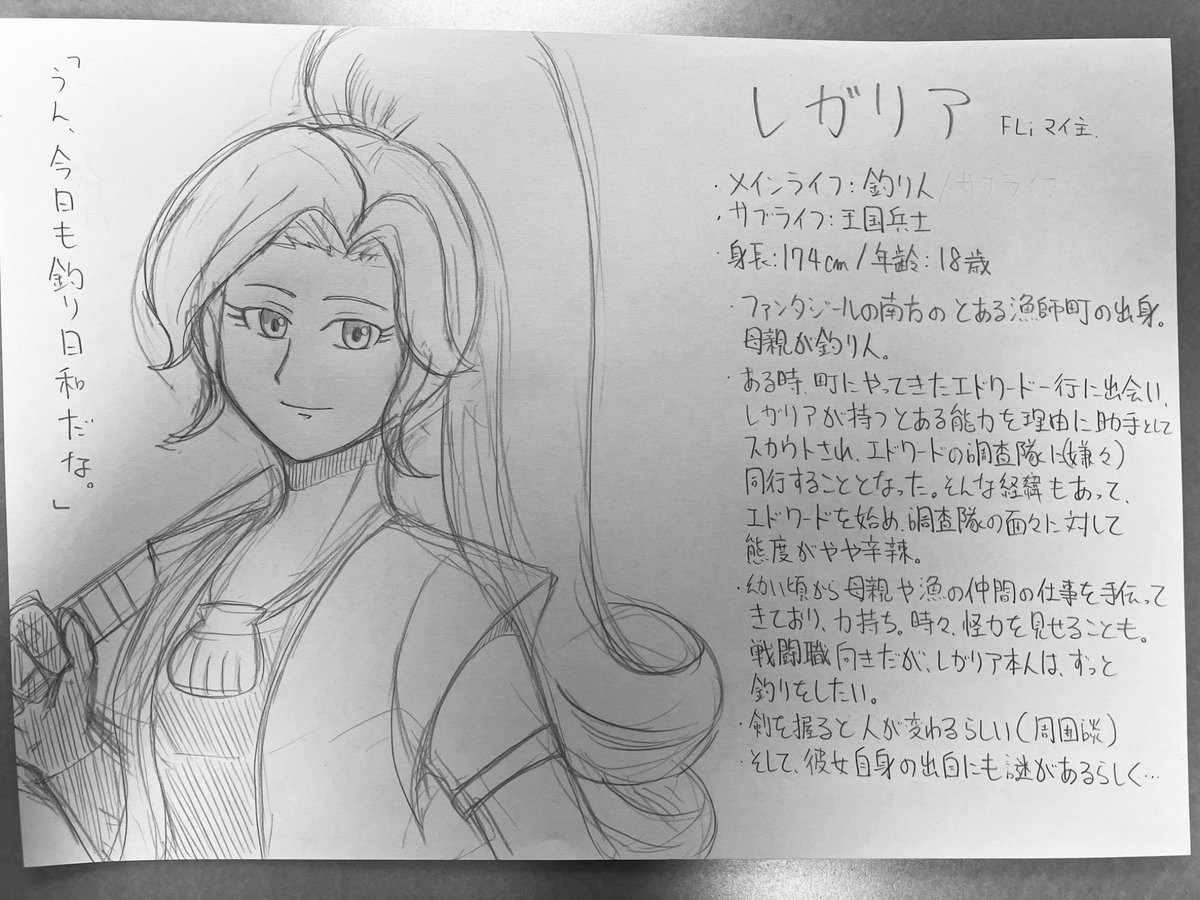 「うん、今日も釣り日和だな。」
レガリア FLi マイ主.
・メインライフ:釣り人/サブライフ
・サブライフ:王国兵士
・身長:174cm/年齢:18歳
・ファンタジールの南方のとある漁師町の出身。
母親が釣り人。
・ある時、町にやってきたエドワード一行に出会い、
レガリアが持つとある能力を理由に助手として
スカウトされ、エドワードの調査隊に(嫌々)
同行することとなった。そんな経緯もあって、
エドワードを始め、調査隊の面々に対して
態度がやや辛辣。
・幼い頃から母親や漁の仲間の仕事を手伝って
きており、力持ち。時々、怪力を見せることも。
戦闘職向きだが、レガリア本人は、ずっと
釣りをしたい。
・剣を握ると人が変わるらしい(周囲談)
・そして、彼女自身の出自にも謎があるらしく…